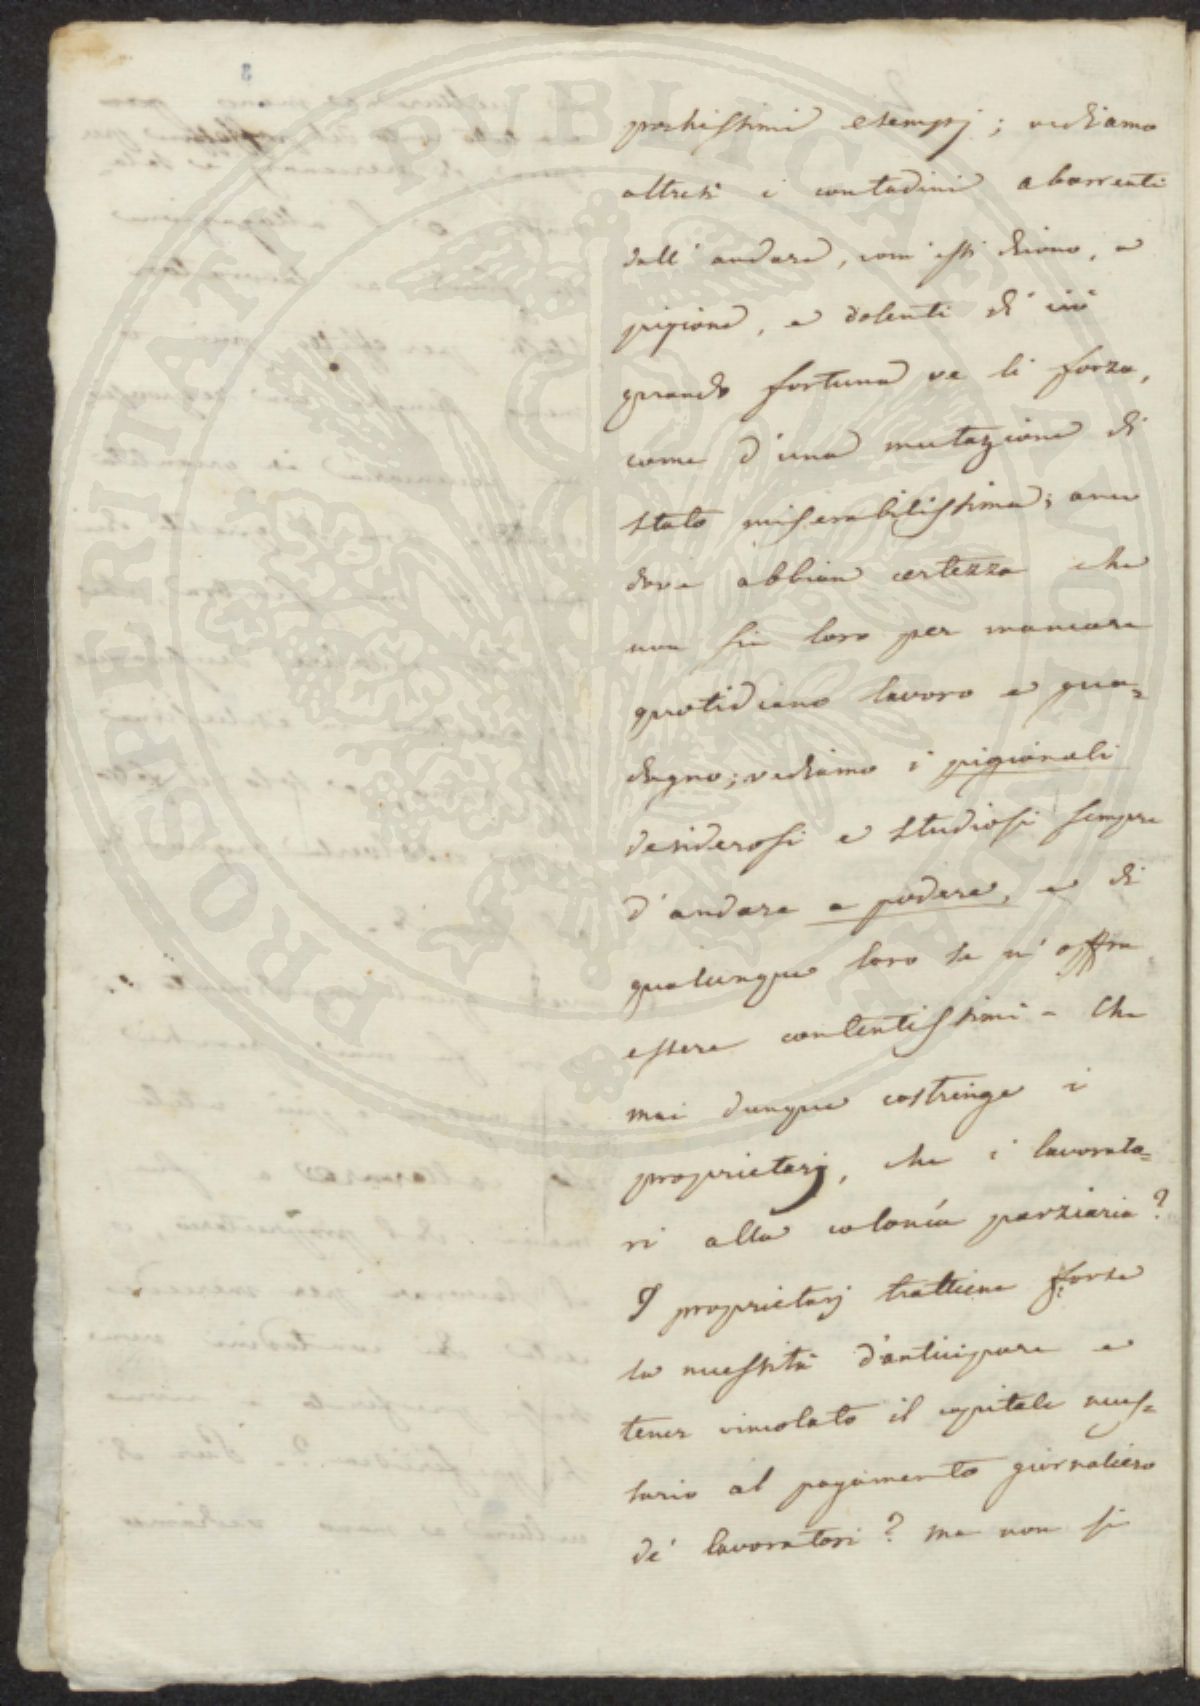 PROSPERITATI PUBLICAE AUGENDAE
pochissimi esempj; vediamo
altresì i contadini aborrenti
dall' andare, com' essi dicono, a
pigione, e dolenti di ciò
quando fortuna ve li forza,
come d'una mutazione di
stato miserabilissima; anco
dove abbian certezza che
non sia loro per mancare
quotidiano lavoro e gua=
dagno; vediamo i pigionali
desiderosi e studiosi sempre
d'andare a podere, e di
qualunque loro se n' offra
essere contentissimi - Che
mai dunque costringe i
proprietarj, che i lavorato=
ri alla colonía parziaria?
I proprietarj trattiene forse
la necessità d'anticipare e
tener vincolato il capitale neces=
sario al pagamento giornaliero
de' lavoratori? ma non si